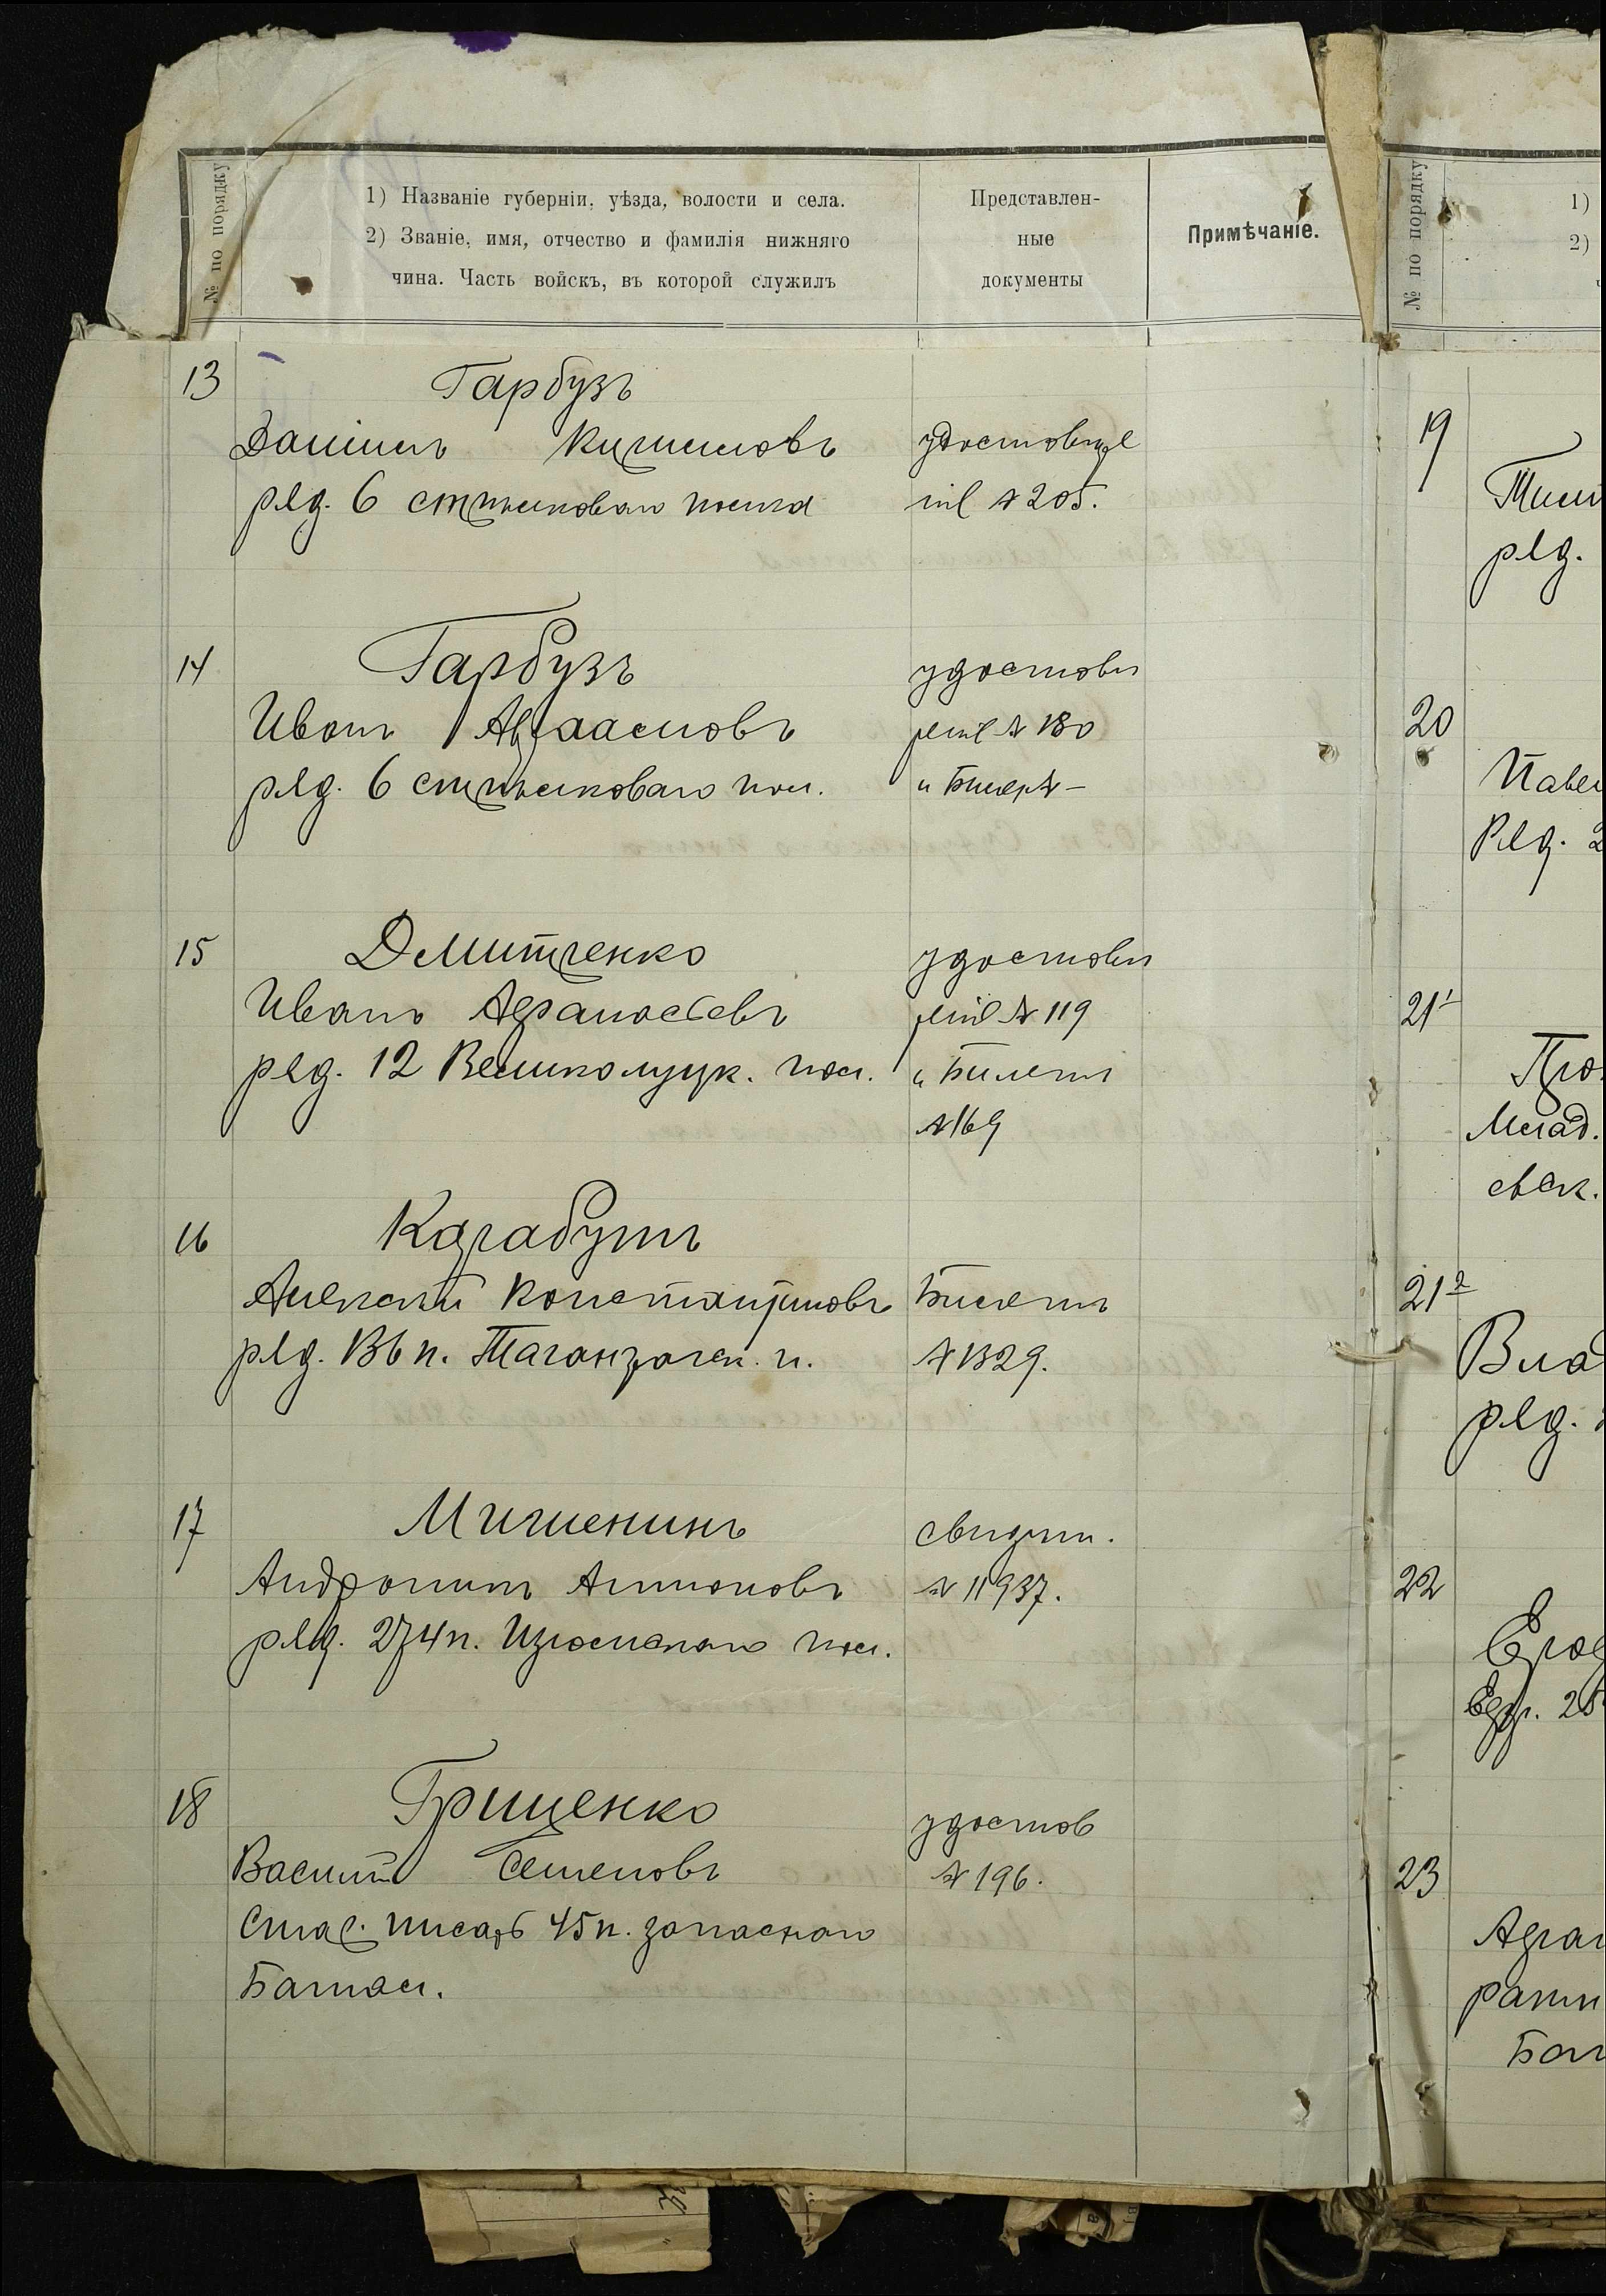 № по порядку
1) Названіе губерніи, уѣзда, волости и села.
2) Званіе, имя, отчество и фамилія нижняго
чина. Часть войскъ, въ которой служилъ
Представлен-
ные
документы
Примѣчаніе.
13
Гарбузъ
Даніилъ Кириловъ
ряд. 6 стрѣлковаго полка
удостовѣре
ніе № 205.
14
Гарбузъ
Иванъ Афанасіовъ
ряд. 6 стрѣлковаго пол.
удостовѣ
реніе № 180
и Билет №
15
Дмитренко
Иванъ Афанасьевъ
ряд. 12 Великолуцк. пол.
удостовѣ
реніе № 119
и Билетъ
№ 169
16
Карабутъ
Алексѣй Константиновъ
ряд. 136 п. Таганрогск. п.
Билетъ
№ 1329.
17
Мишенинъ
Андроникъ Антоновъ
ряд. 274 п. Изюмскаго пол.
свидѣт.
№ 11937.
18
Грищенко
Василій Семеновъ
Стар. писарь 45 п. запаснаго
Батал.
удостов
№ 196.
№ по порядку
1)
2)
19
ряд.
20
Павел
Ряд. 2
21¹
Млад.
21²
Вла
ряд.
22
Ефр. 25
23